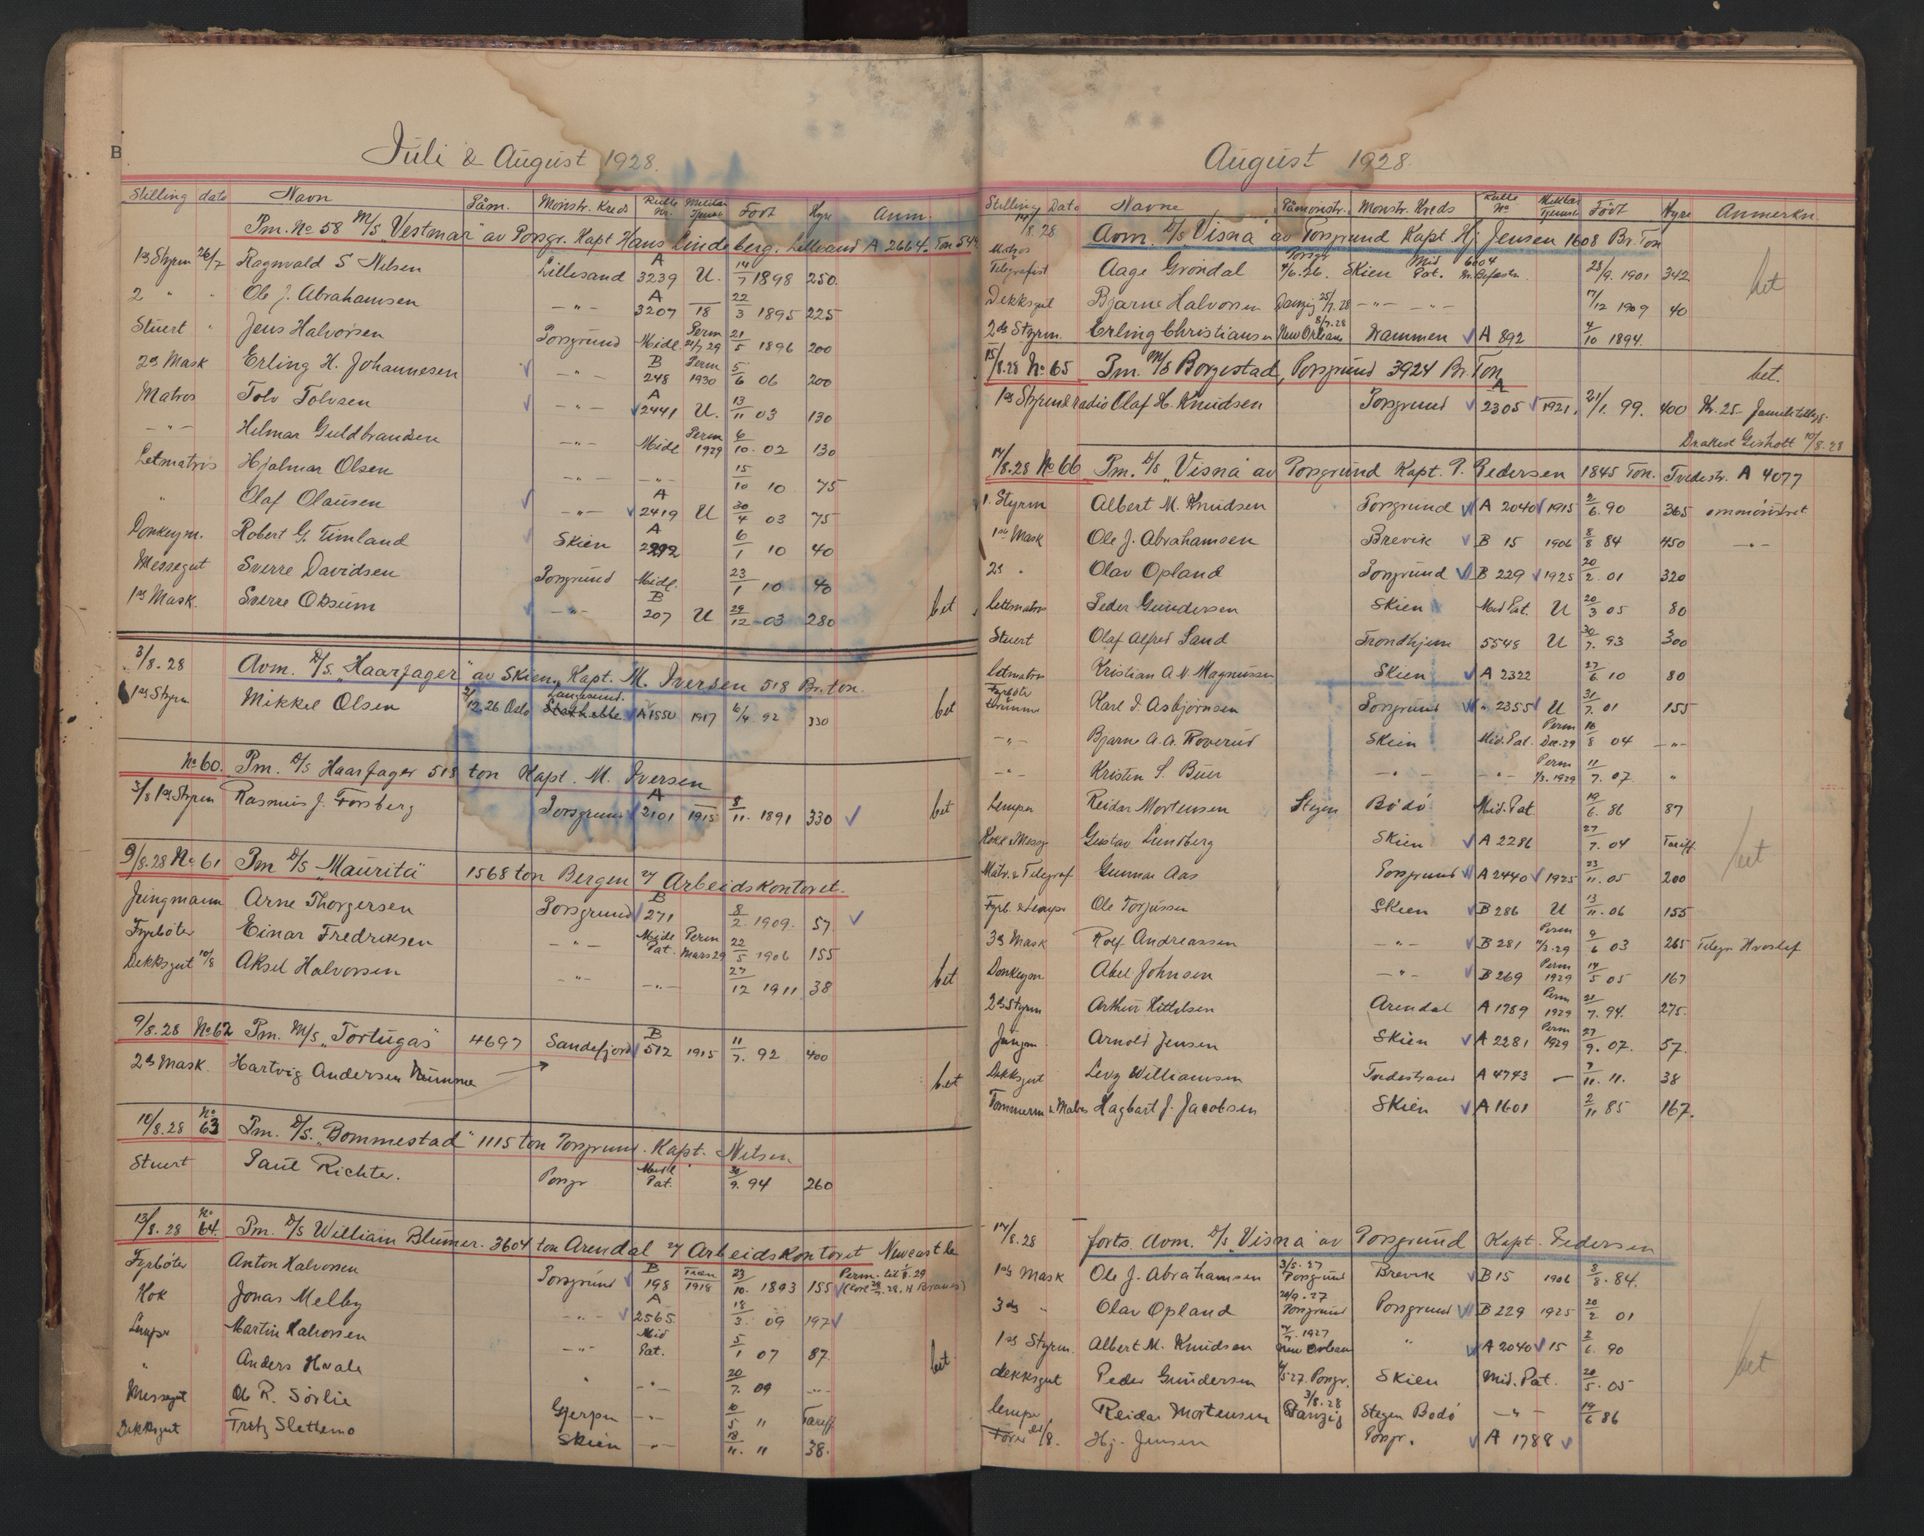 Juli & August 1928.
Stilling dato Navn Påm. Mönstr. Kreds Rulle Nr. Född Hyre Anm.
Pm. No 58 M/S "Vestmar" av Porsgr. Kapt Hans Lindeberg. Lillesand A 2664. Ton 54
1st Styrm 26/7 Ragnvald S Nilsen Lillesand A 3239 U. 14/7 1898 250
2 " " Ole J. Abrahamsen -"- A 3207 18 22/3 1895 225
Stuert " Jens Halvorsen Porsgrund Midl. Perm 21/7 29 21/5 1896 200
2d Mask Erling H. Johannesen -"- B 248 Perm 1930 5/6 06 200
Matros Tolv Tolvsen -"- A 2441 U. 13/11 03 130
-"- Hilmar Guldbrandsen -"- Midl Perm 1929 6/10 02 130
Letmatros Hjalmar Olsen -"- -"- 15/10 10 75
" Olaf Olausen -"- A 2419 U 30/4 03 75
Donkeym. Robert G. Timland Skien A 2292 6/1 10 40
Messegut Sverre Davidsen Porsgrund Midl. 23/1 10 40
1st Mask. Sverre Oksum -"- B 207 U 29/12 -03 280 bet
3/8.28 Avm. D/S. "Haarfager" av Skien, Kapt. M. Iversen 518 Br. ton.
1st Styrm Mikkel Olsen 21/12.26 Oslo Langesund Stathelle A 1550 1917 6/4 92 330 bet
No 60. Pm. D/S Haarfager 518 ton Kapt. M. Iversen
3/8 1st Styrm Rasmus J. Forsberg Porsgrund A 2101 1915 8/11. 1891 330 bet
9/8.28 No 61 Pm D/S "Maurita" 1568 ton Bergen v/ Arbeidskontoret.
Jungmann Arne Thorgersen Porsgrund B 271 8/2. 1909. 57
Fyrböter Einar Fredriksen -"- Midl Pat. Perm Mars 29 22/5 1906 155
Dekksgut 10/8 Aksel Halvorsen -"- -"- 27/12 1911 38 bet
9/8.28 No 62 Pm. M/S. "Tortugas" 4697 Sandefjord B 512 1915 11/7. 92 400
2d Mask. Hartvig Andersen Numme bet
10/8.28 No 63 Pm. D/S. "Bommestad" 1115 ton Porsgrund. Kapt. Nilsen
Stuert Paul Richter. Porsgr Midl Pat. 30/9. 94 260
13/8.28 No 64. Pm. D/S William Blumer. 3604 ton Arendal v/ Arbeidskontoret Newcastle
Fyrböter Anton Halvorsen Porsgrund B 198 1918 23/10. 1893 155 Perm. til 1/8.29
Kok Jonas Melby -"- A 2565 18/3. 09 197
Lemper Martin Halvorsen -"- Mid Pat. 5/1 07 87.
" Anders Hvale " -"- 20/7. 09 -"- bet
Messegut Ole R. Sörlie Gjerpen -"- 10/5 11 Tariff
Dekksgut Fritz Slettemo Skien -"- 18/11. 11 38.
August 1928.
Stilling Dato Navne Påmönstr. Monstr. Kreds Rulle No Militær Tjeneste Född Hyre Anmerkn.
14/8.28 Avm. D/S "Visna" av Porsgrund Kapt Hj Jensen 1608 Br. Ton
Matros Telegrafist Aage Gröndal Porsgr 7/6.26. Skien Mid Pat. 6004 28/9. 1901 342
Dekksgut Bjarne Halvorsen Danzig 25/7.28 -"- -"- 17/12 1909 40 bet
2de Styrm. Erling Christiansen 8/7.28 New Orleans Drammen A 892 4/10 1894.
15/8.28 No 65 Pm. M/S Borgestad, Porsgrund 3924 Br. Ton bet.
1st Styrm & radio Olaf H. Knudsen Porsgrund A 2305 1921. 21/1. 99. 400 Kr. 25 Familietillegg.
Drakest Gisholt 10/8.28
14/8.28 No 66 Pm. D/S "Visna" av Porsgrund Kapt. P. Pedersen 1845 Ton. Tvedestr. A 4077
1. Styrm Albert M. Knudsen Porsgrund A 2040 1915 2/6. 90 365 ommönstret
1st Mask Ole J. Abrahamsen Brevik B 15 1906 8/8 84 450 -"-
2d " Olav Opland Porsgrund B 229 1925 20/2. 01 320
Lettmatros Peder Gundersen Skien Mid Pat. U 20/3 05 80
Stuert Olaf Alfred Sand Trondhjem 5548 U 30/7. 93 300
Letmatros Kristian A. N. Magnussen Skien A 2322 27/6 10 80
Fyrböter Karl I. Asbjörnsen Porsgrund " 2355 U 31/7. 01 155
-"- Bjarne A. A. Roverud Skien Mid. Pat. Perm Dec. 29 16/8 04 -"-
-"- Kristen S. Buer -"- -"- Perm 1/3. 1929 11/7. 07. "
Lemper Reidar Mortensen Stegen Bodö Mid. Pat 19/6. 86 87
Kokk & Messg Gustav Lundberg Skien A 2286 27/7. 04 Tariff bet
Matr. & Telegraf Gunnar Aas Porsgrund A 2440 1925 23/11. 05 200
Fyrb. & Lemper Ole Torjussen Skien B 286 U 13/11. 06 155
3d Mask Rolf Andreassen -"- B 281 Perm 11/3.29 9/6 03 265 Telegr Hvoslef
Donkeym Abel Johnsen -"- B 269 Perm 1929 14/5 05 167
2d Styrm Arthur Kittelsen Arendal A 1789 Perm 1929 21/7. 94. 275.
Jungm. Arnold Jensen Skien A 2281 Perm 1929 27/9. 07. 57.
Dekksgut Levy Williamsen Tvedestrand A 4743 — 7/11. 11. 38
Tommerm & Matros Hagbart J. Jacobsen Skien A 1601 2/11 85 167.
14/8.28 forts. Avm. D/S. "Visna" av Porsgrund Kapt. Pedersen
1st Mask Ole J. Abrahamsen 3/5.27 Porsgrund Brevik B 15 1906 8/8. 84.
3de " Olav Opland 20/9.27 Porsgrund Porsgrund B 229 1925 20/2 01
1st Styrm. Albert M. Knudsen 1927 New Orleans " A 2040 15 2/6. 90
dekksgut Peder Gundersen 5 27. Porsgr. Skien Mid. Pat. 20/5. 05 bet
Lemper Reidar Mortensen 3/8.28 Danzig Stegen Bodö -"- 19/6 86
Förer 8. Hj. Jensen Porsgr. A 1788